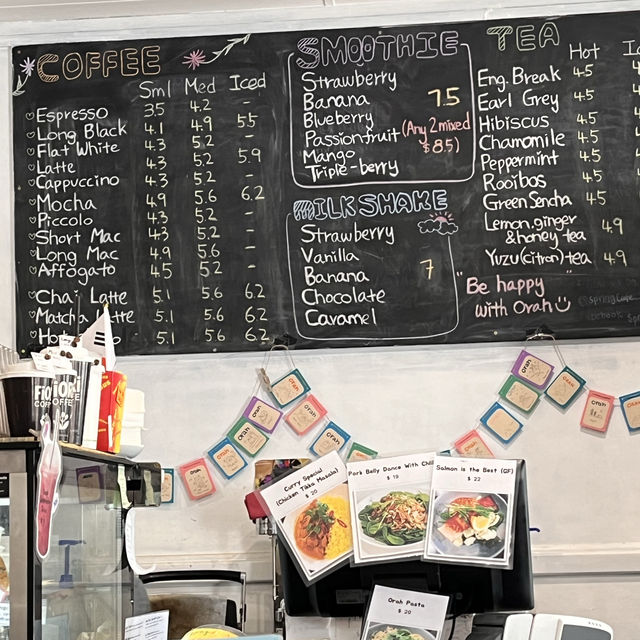 COFFEE
Sml Med Iced
Espresso 3.5 4.2 -
Long Black 4.1 4.9 5.5
Flat White 4.3 5.2 -
Latte 4.3 5.2 5.9
Cappuccino 4.3 5.2 -
Mocha 4.9 5.6 6.2
Piccolo 4.3 5.2 -
Short Mac 4.3 5.2 -
Long Mac 4.9 5.6 -
Affogato 4.5 5.2 -
Chai Latte 5.1 5.6 6.2
Matcha Latte 5.1 5.6 6.2
Hot 5.1 5.6 6.2
SMOOTHIE
Strawberry
Banana 7.5
Blueberry
Passionfruit (Any 2 mixed
Mango $8.5)
Triple-berry
MILKSHAKE
Strawberry
Vanilla
Banana 7
Chocolate
Caramel
TEA
Hot
Eng. Break 4.5
Earl Grey 4.5
Hibiscus 4.5
Chamomile 4.5
Peppermint 4.5
Rooibos 4.5
Green Sencha 4.5
Lemon, ginger
& honey tea 4.9
Yuzu (citron) tea 4.9
"Be happy
with Orah"
FIORI
COFFEE
Curry Special
(Chicken Tikka Masala)
$ 20
Pork Belly Dance With Chili
$ 19
Salmon is the Best (GF)
$ 22
Orah Pasta
$ 20